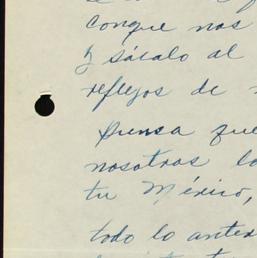 conque nos
y sácalo al
reflejos de
Piensa que
nosotras lo
tu México,
todo lo anter